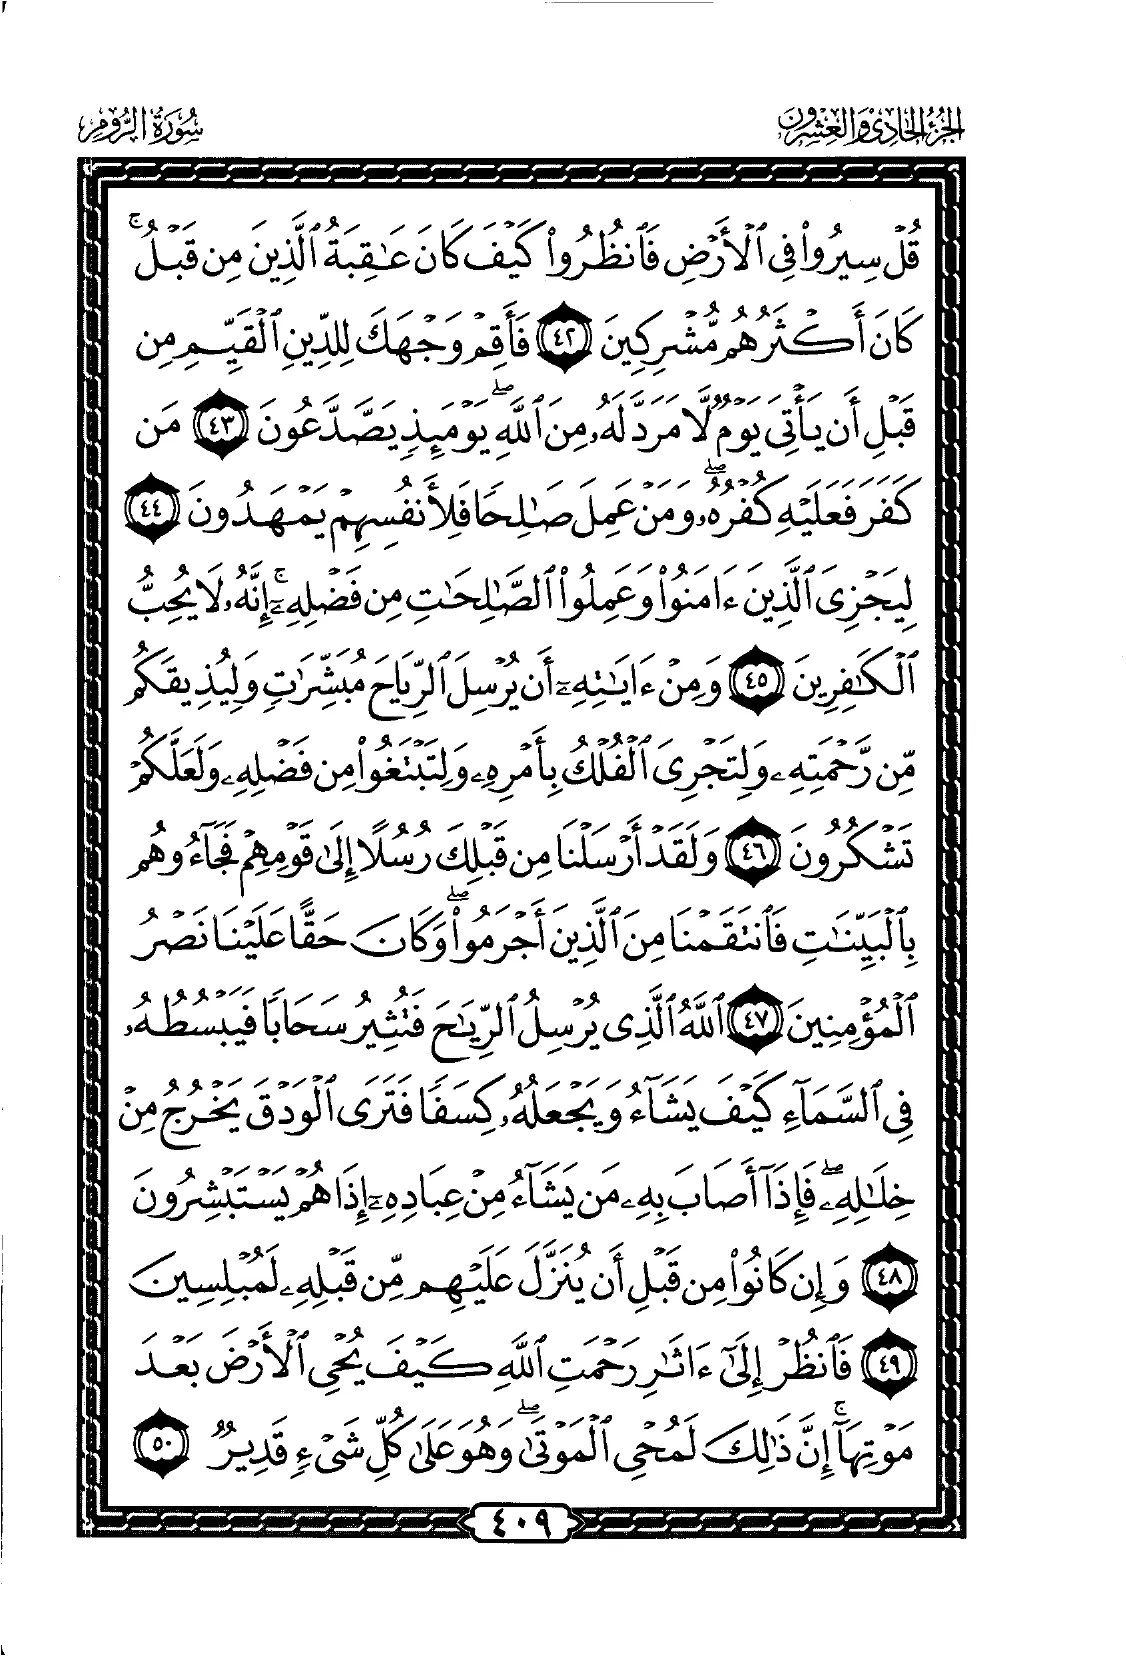 الجزء الحادي والعشرون
سورة الروم
قُلۡ سِيرُواْ فِي ٱلۡأَرۡضِ فَٱنظُرُواْ كَيۡفَ كَانَ عَٰقِبَةُ ٱلَّذِينَ مِن قَبۡلُۚ
كَانَ أَكۡثَرُهُم مُّشۡرِكِينَ ٤٢ فَأَقِمۡ وَجۡهَكَ لِلدِّينِ ٱلۡقَيِّمِ مِن
قَبۡلِ أَن يَأۡتِيَ يَوۡمٞ لَّا مَرَدَّ لَهُۥ مِنَ ٱللَّهِۖ يَوۡمَئِذٖ يَصَّدَّعُونَ ٤٣ مَن
كَفَرَ فَعَلَيۡهِ كُفۡرُهُۥۖ وَمَنۡ عَمِلَ صَٰلِحٗا فَلِأَنفُسِهِمۡ يَمۡهَدُونَ ٤٤
لِيَجۡزِيَ ٱلَّذِينَ ءَامَنُواْ وَعَمِلُواْ ٱلصَّٰلِحَٰتِ مِن فَضۡلِهِۦٓۚ إِنَّهُۥ لَا يُحِبُّ
ٱلۡكَٰفِرِينَ ٤٥ وَمِنۡ ءَايَٰتِهِۦٓ أَن يُرۡسِلَ ٱلرِّيَاحَ مُبَشِّرَٰتٖ وَلِيُذِيقَكُم
مِّن رَّحۡمَتِهِۦ وَلِتَجۡرِيَ ٱلۡفُلۡكُ بِأَمۡرِهِۦ وَلِتَبۡتَغُواْ مِن فَضۡلِهِۦ وَلَعَلَّكُمۡ
تَشۡكُرُونَ ٤٦ وَلَقَدۡ أَرۡسَلۡنَا مِن قَبۡلِكَ رُسُلًا إِلَىٰ قَوۡمِهِمۡ فَجَآءُوهُم
بِٱلۡبَيِّنَٰتِ فَٱنتَقَمۡنَا مِنَ ٱلَّذِينَ أَجۡرَمُواْۖ وَكَانَ حَقًّا عَلَيۡنَا نَصۡرُ
ٱلۡمُؤۡمِنِينَ ٤٧ ٱللَّهُ ٱلَّذِي يُرۡسِلُ ٱلرِّيَٰحَ فَتُثِيرُ سَحَابٗا فَيَبۡسُطُهُۥ
فِي ٱلسَّمَآءِ كَيۡفَ يَشَآءُ وَيَجۡعَلُهُۥ كِسَفٗا فَتَرَى ٱلۡوَدۡقَ يَخۡرُجُ مِنۡ
خِلَٰلِهِۦۖ فَإِذَآ أَصَابَ بِهِۦ مَن يَشَآءُ مِنۡ عِبَادِهِۦٓ إِذَا هُمۡ يَسۡتَبۡشِرُونَ
٤٨ وَإِن كَانُواْ مِن قَبۡلِ أَن يُنَزَّلَ عَلَيۡهِم مِّن قَبۡلِهِۦ لَمُبۡلِسِينَ
٤٩ فَٱنظُرۡ إِلَىٰٓ ءَاثَٰرِ رَحۡمَتِ ٱللَّهِ كَيۡفَ يُحۡيِ ٱلۡأَرۡضَ بَعۡدَ
مَوۡتِهَآۚ إِنَّ ذَٰلِكَ لَمُحۡيِ ٱلۡمَوۡتَىٰۖ وَهُوَ عَلَىٰ كُلِّ شَيۡءٖ قَدِيرٞ ٥٠
٤٠٩